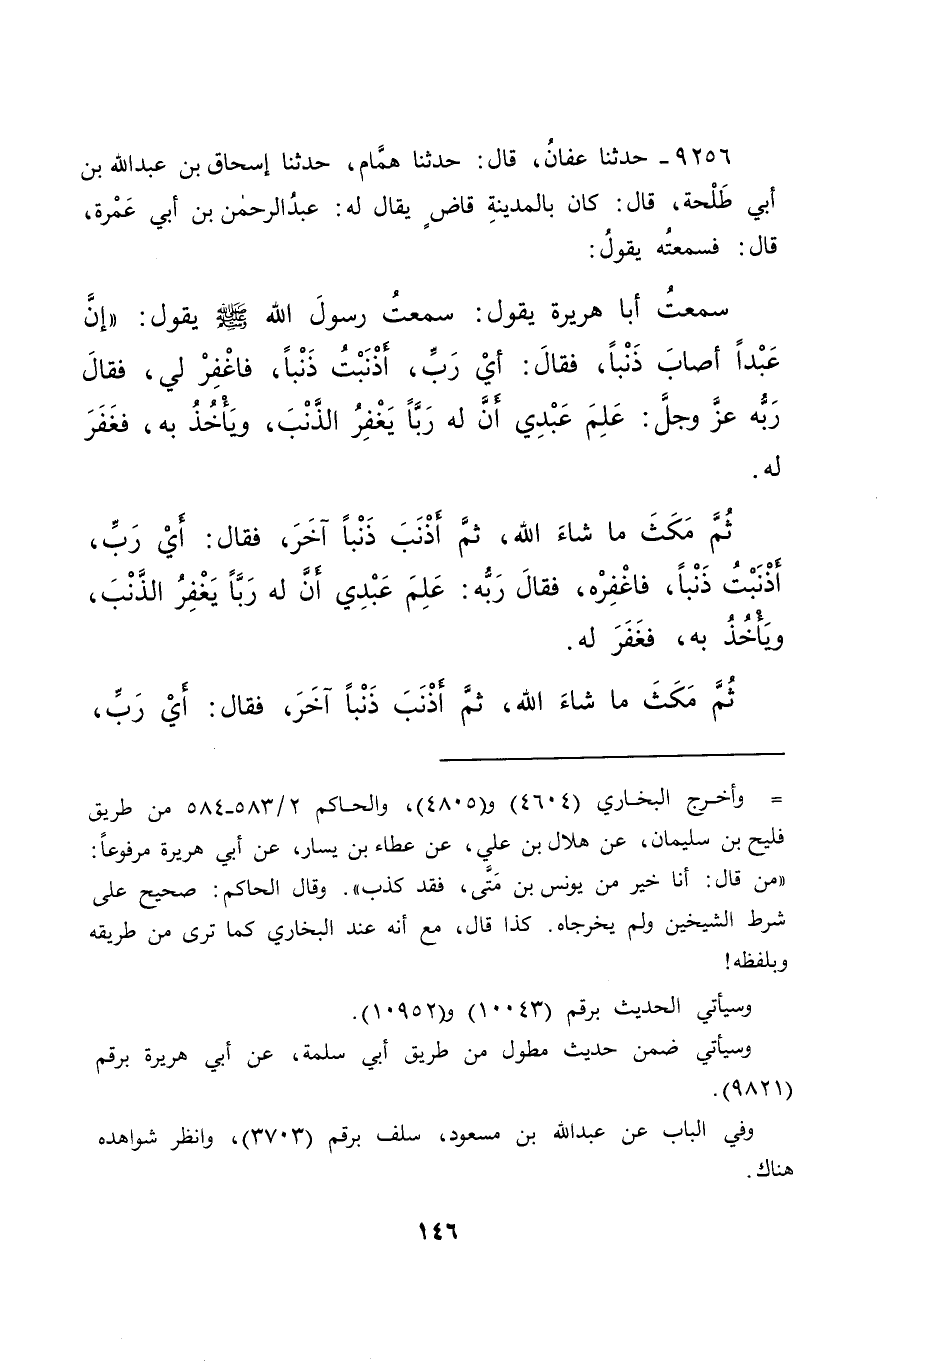 ٩٢٥٦ - حدثنا عفانُ، قال: حدثنا همَّام، حدثنا إسحاق بن عبدالله بن
أبي طَلْحة، قال: كان بالمدينةِ قاضٍ يقال له: عبدُالرحمٰن بن أبي عَمْرة،
قال: فسمعتُه يقولُ:
سمعتُ أبا هريرة يقول: سمعتُ رسولَ الله ﷺ يقول: «إنَّ
عَبْداً أصابَ ذَنْباً، فقالَ: أيْ رَبِّ، أَذْنَبْتُ ذَنْباً، فاغْفِرْ لي، فقالَ
رَبُّه عزَّ وجلَّ: عَلِمَ عَبْدِي أَنَّ له رَبَّاً يَغْفِرُ الذَّنْبَ، ويَأْخُذُ به، فغَفَرَ
له.
ثُمَّ مَكَثَ ما شاءَ الله، ثمَّ أَذْنَبَ ذَنْباً آخَرَ، فقال: أَيْ رَبِّ،
أَذْنَبْتُ ذَنْباً، فاغْفِرْه، فقالَ رَبُّه: عَلِمَ عَبْدِي أَنَّ له رَبَّاً يَغْفِرُ الذَّنْبَ،
ويَأْخُذُ به، فغَفَرَ له.
ثُمَّ مَكَثَ ما شاءَ الله، ثمَّ أَذْنَبَ ذَنْباً آخَرَ، فقال: أَيْ رَبِّ،
= وأخرج البخاري (٤٦٠٤) و(٤٨٠٥)، والحاكم ٥٨٣/٢-٥٨٤ من طريق
فليح بن سليمان، عن هلال بن علي، عن عطاء بن يسار، عن أبي هريرة مرفوعاً:
«من قال: أنا خير من يونس بن مَتَّى، فقد كذب». وقال الحاكم: صحيح على
شرط الشيخين ولم يخرجاه. كذا قال، مع أنه عند البخاري كما ترى من طريقه
وبلفظه!
وسيأتي الحديث برقم (١٠٠٤٣) و(١٠٩٥٢).
وسيأتي ضمن حديث مطول من طريق أبي سلمة، عن أبي هريرة برقم
(٩٨٢١).
وفي الباب عن عبدالله بن مسعود، سلف برقم (٣٧٠٣)، وانظر شواهده
هناك.
١٤٦